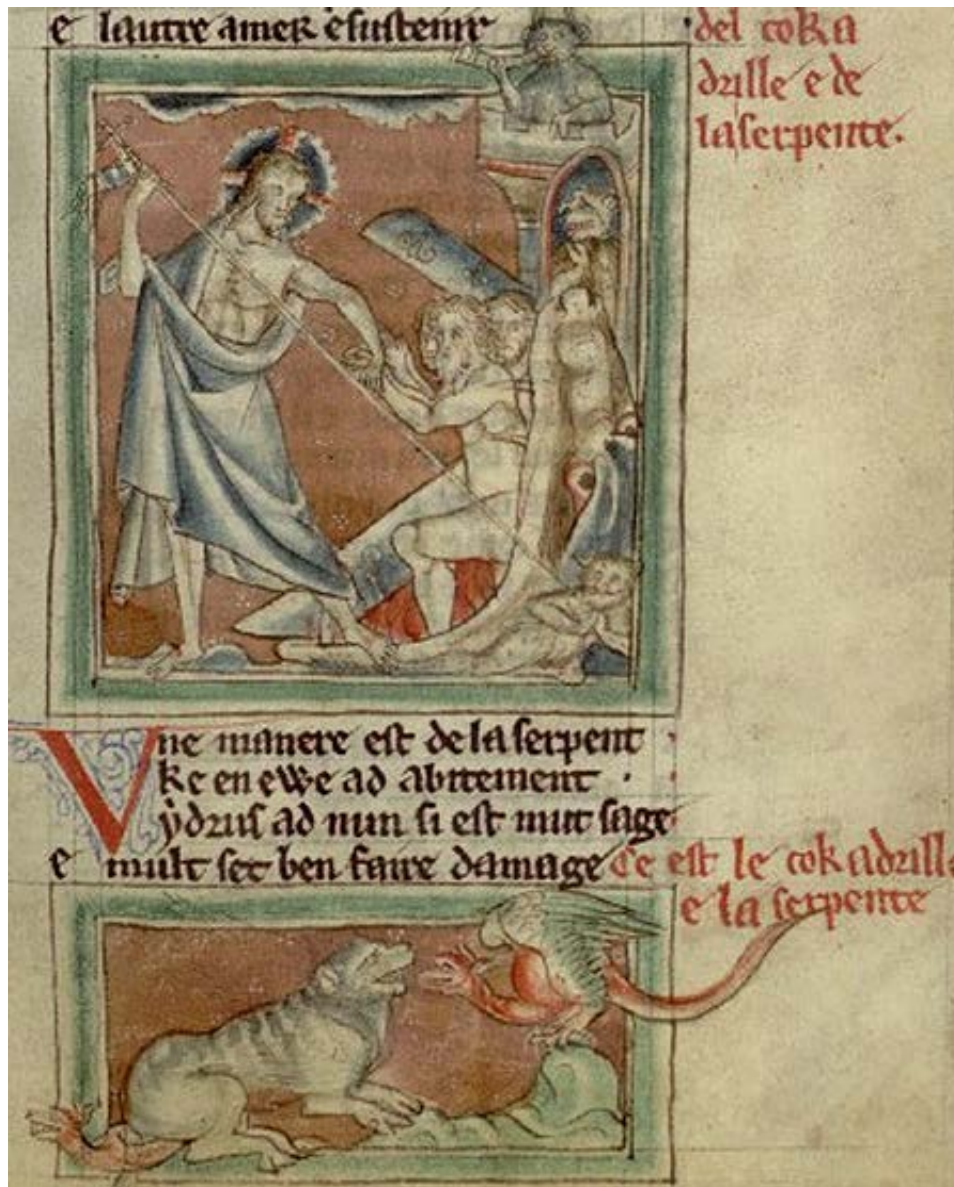 e lautre amer e sustenir
del coka
drille e de
la serpente.
Vne manere est de la serpent
ke en ewe ad abitement ·
ydrus ad nun si est mut sage
e mult set ben faire damage
Ce est le cokadrill
e la serpente